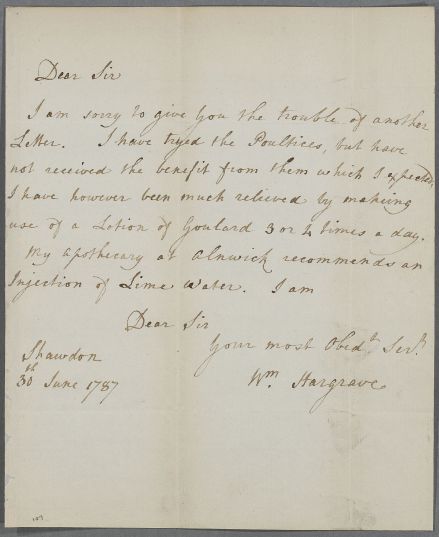 Dear Sir
I am sorry to give you the trouble of another
Letter. I have tryed the Poultices, but have
not received the benefit from them which I expected,
I have however been much relieved by making
use of a Lotion of Goulard 3 or 4 times a day.
My Apothecary at Alnwick recommends an
Injection of Lime Water. I am
Dear Sir
Your most Obed.t Serv.t
Wm. Hargrave
Shawdon
30th June 1787